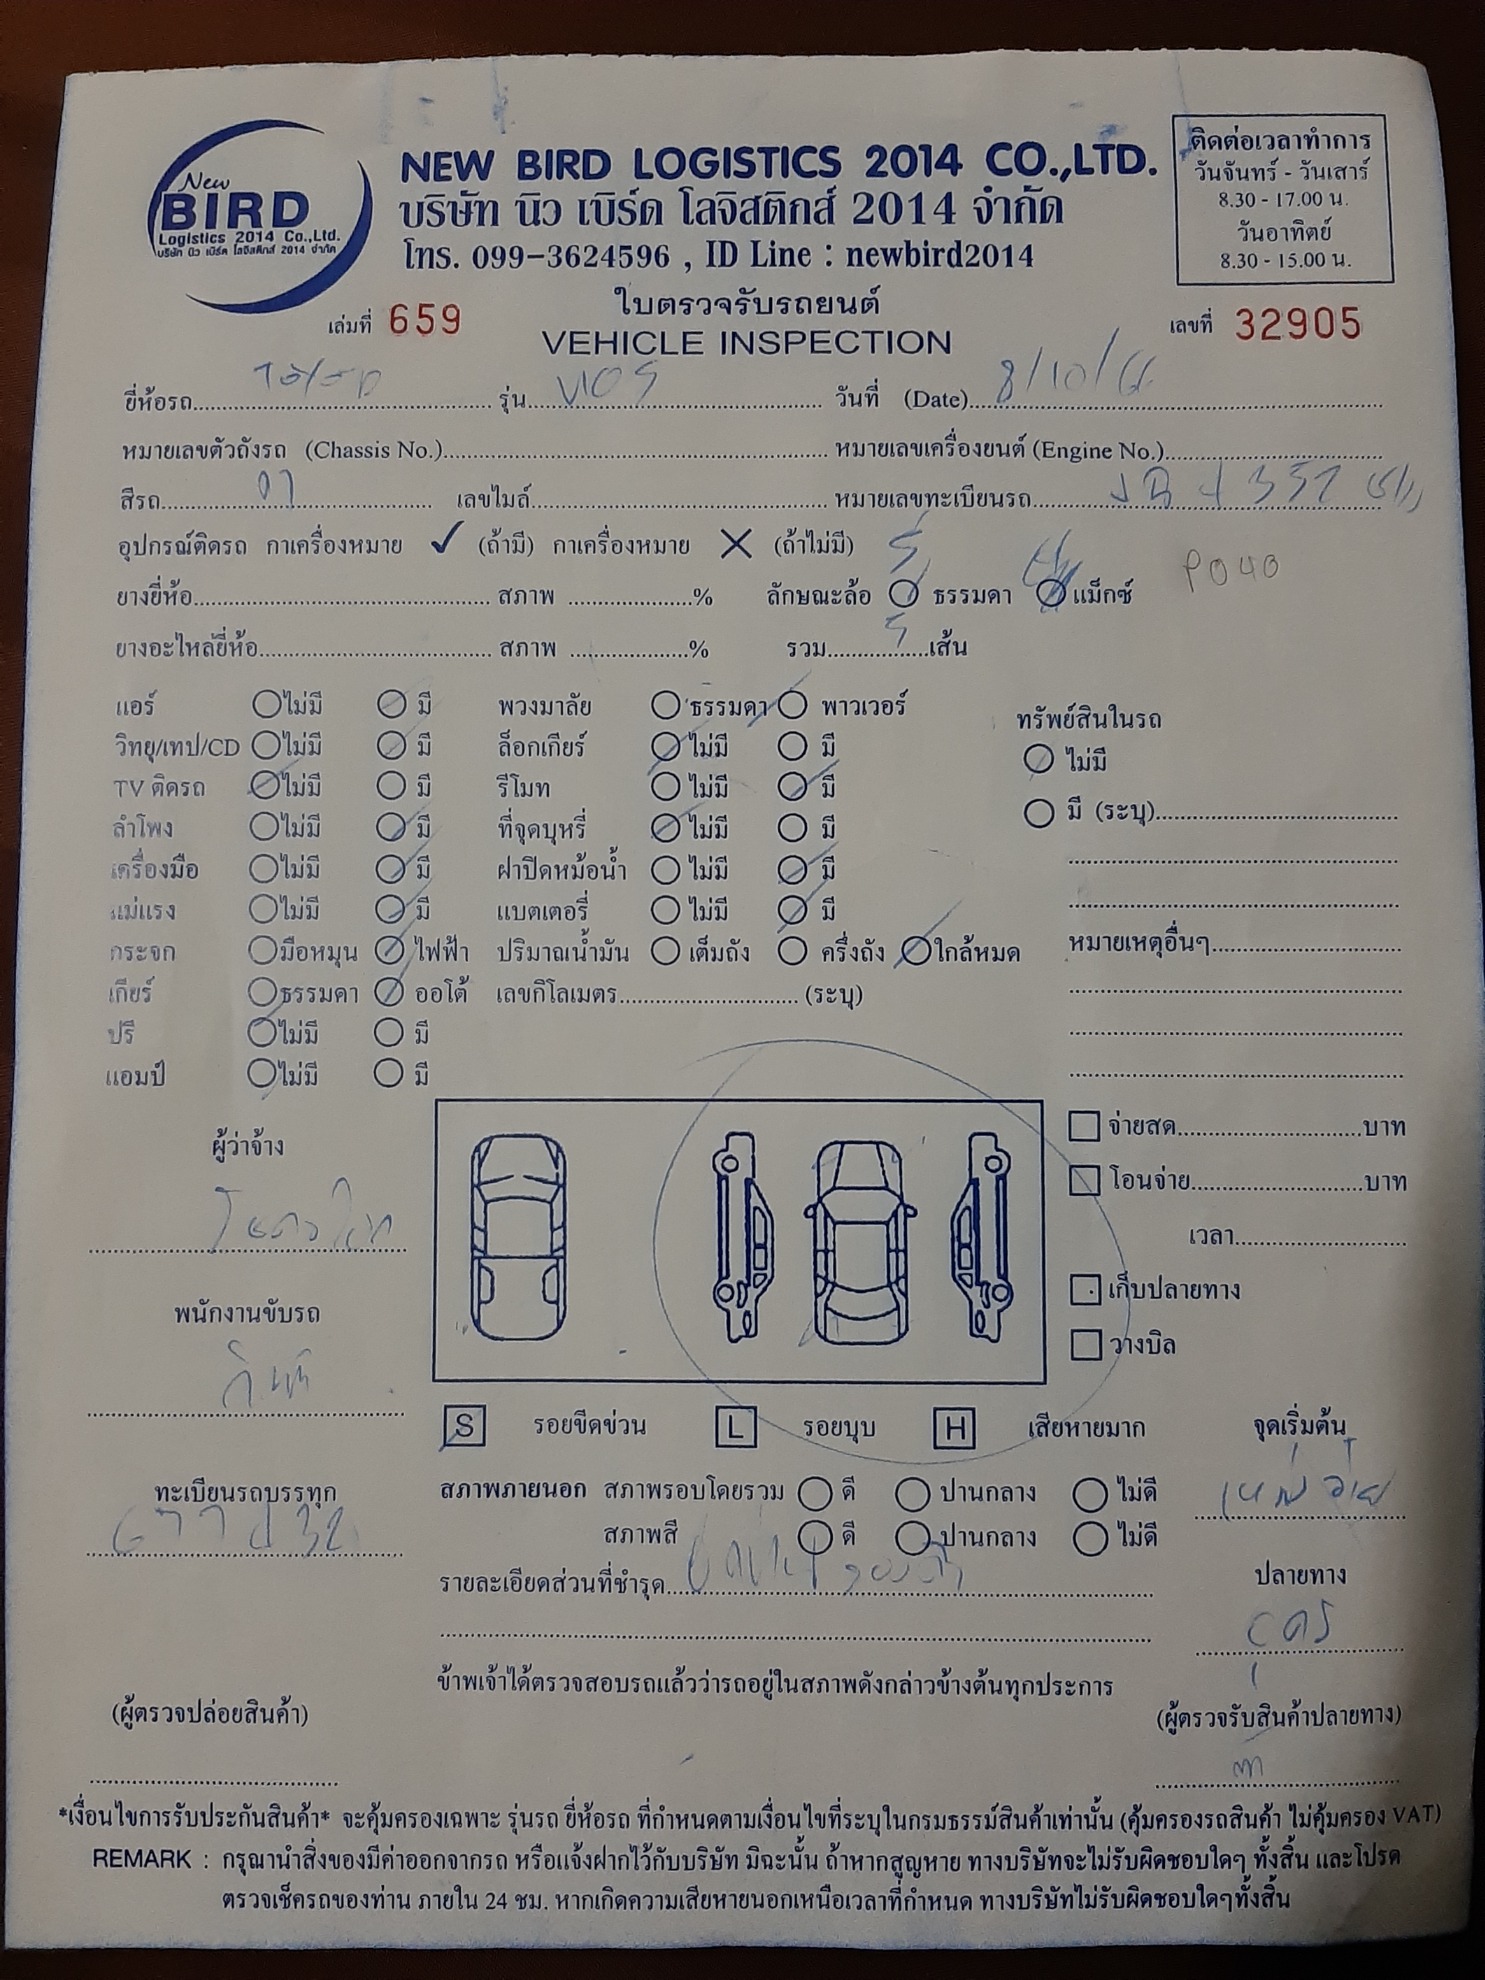 New
BIRD
Logistics 2014 Co.,Ltd.
บริษัท นิว เบิร์ด โลจิสติกส์ 2014 จำกัด
NEW BIRD LOGISTICS 2014 CO.,LTD.
บริษัท นิว เบิร์ด โลจิสติกส์ 2014 จำกัด
โทร. 099-3624596 , ID Line : newbird2014
ติดต่อเวลาทำการ
วันจันทร์ - วันเสาร์
8.30 - 17.00 น.
วันอาทิตย์
8.30 - 15.00 น.
ใบตรวจรับรถยนต์
เล่มที่ 659
VEHICLE INSPECTION
เลขที่ 32905
ยี่ห้อรถ รุ่น VIOS วันที่ (Date) 8/10/66
หมายเลขตัวถังรถ (Chassis No.) หมายเลขเครื่องยนต์ (Engine No.)
สีรถ เลขไมล์ หมายเลขทะเบียนรถ
อุปกรณ์ติดรถ กาเครื่องหมาย ✓ (ถ้ามี) กาเครื่องหมาย ✕ (ถ้าไม่มี)
P040
ยางยี่ห้อ สภาพ % ลักษณะล้อ ธรรมดา แม็กซ์
ยางอะไหล่ยี่ห้อ สภาพ % รวม 5 เส้น
แอร์ ไม่มี มี พวงมาลัย ธรรมดา พาวเวอร์
ทรัพย์สินในรถ
วิทยุ/เทป/CD ไม่มี มี ล็อกเกียร์ ไม่มี มี
ไม่มี
TV ติดรถ ไม่มี มี รีโมท ไม่มี มี
มี (ระบุ)
ลำโพง ไม่มี มี ที่จุดบุหรี่ ไม่มี มี
เครื่องมือ ไม่มี มี ฝาปิดหม้อน้ำ ไม่มี มี
แม่แรง ไม่มี มี แบตเตอรี่ ไม่มี มี
กระจก มือหมุน ไฟฟ้า ปริมาณน้ำมัน เต็มถัง ครึ่งถัง ใกล้หมด
หมายเหตุอื่นๆ
เกียร์ ธรรมดา ออโต้ เลขกิโลเมตร (ระบุ)
ปรี ไม่มี มี
แอมป์ ไม่มี มี
ผู้ว่าจ้าง
จ่ายสด บาท
โอนจ่าย บาท
เวลา
พนักงานขับรถ
เก็บปลายทาง
วางบิล
S รอยขีดข่วน L รอยบุบ H เสียหายมาก
จุดเริ่มต้น
ทะเบียนรถบรรทุก
สภาพภายนอก สภาพรอบโดยรวม ดี ปานกลาง ไม่ดี
สภาพสี ดี ปานกลาง ไม่ดี
รายละเอียดส่วนที่ชำรุด
ปลายทาง
ข้าพเจ้าได้ตรวจสอบรถแล้วว่ารถอยู่ในสภาพดังกล่าวข้างต้นทุกประการ
(ผู้ตรวจปล่อยสินค้า)
(ผู้ตรวจรับสินค้าปลายทาง)
*เงื่อนไขการรับประกันสินค้า* จะคุ้มครองเฉพาะ รุ่นรถ ยี่ห้อรถ ที่กำหนดตามเงื่อนไขที่ระบุในกรมธรรม์สินค้าเท่านั้น (คุ้มครองรถสินค้า ไม่คุ้มครอง VAT)
REMARK : กรุณานำสิ่งของมีค่าออกจากรถ หรือแจ้งฝากไว้กับบริษัท มิฉะนั้น ถ้าหากสูญหาย ทางบริษัทจะไม่รับผิดชอบใดๆ ทั้งสิ้น และโปรด
ตรวจเช็ครถของท่าน ภายใน 24 ชม. หากเกิดความเสียหายนอกเหนือเวลาที่กำหนด ทางบริษัทไม่รับผิดชอบใดๆทั้งสิ้น